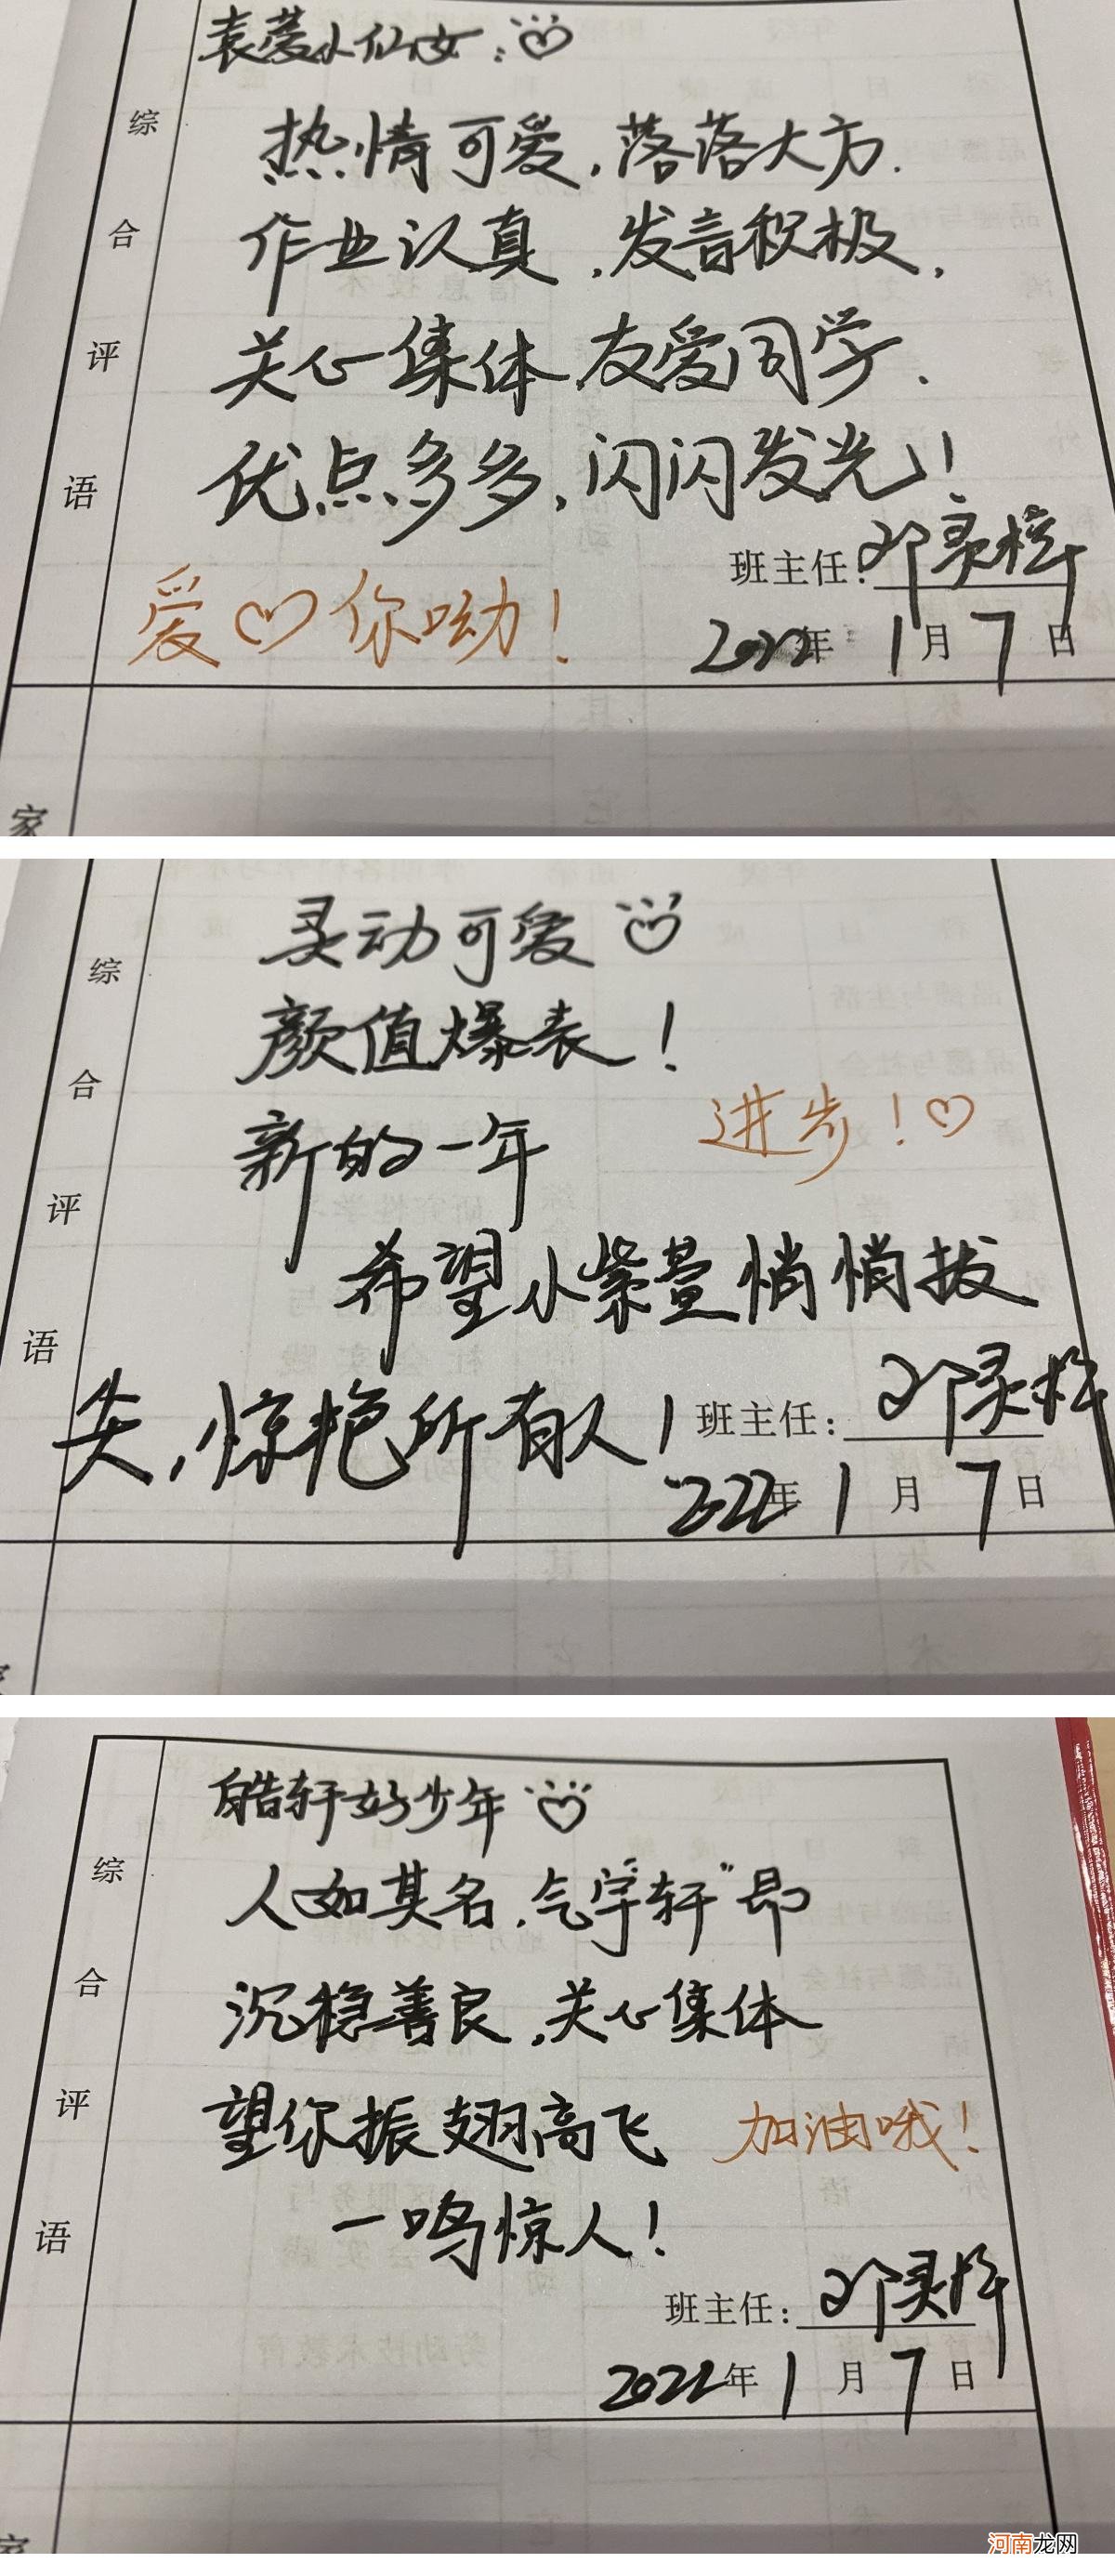 袁菱小仙女:
热情可爱,落落大方.
作业认真,发言积极,
关心集体 友爱同学.
优点多多,闪闪发光!
爱 你呦!
综
合
评
语
班主任:邓灵梓
2022年1月7日
家
灵动可爱
颜值爆表!
新的一年
进步!
希望小紫萱悄悄拔
尖,惊艳所有人!
综
合
评
语
班主任:邓灵梓
2022年1月7日
皓轩好少年
人如其名,气宇“轩”昂
沉稳善良,关心集体
望你振翅高飞
加油哦!
一鸣惊人!
综
合
评
语
班主任:邓灵梓
2022年1月7日
家
河南龙网